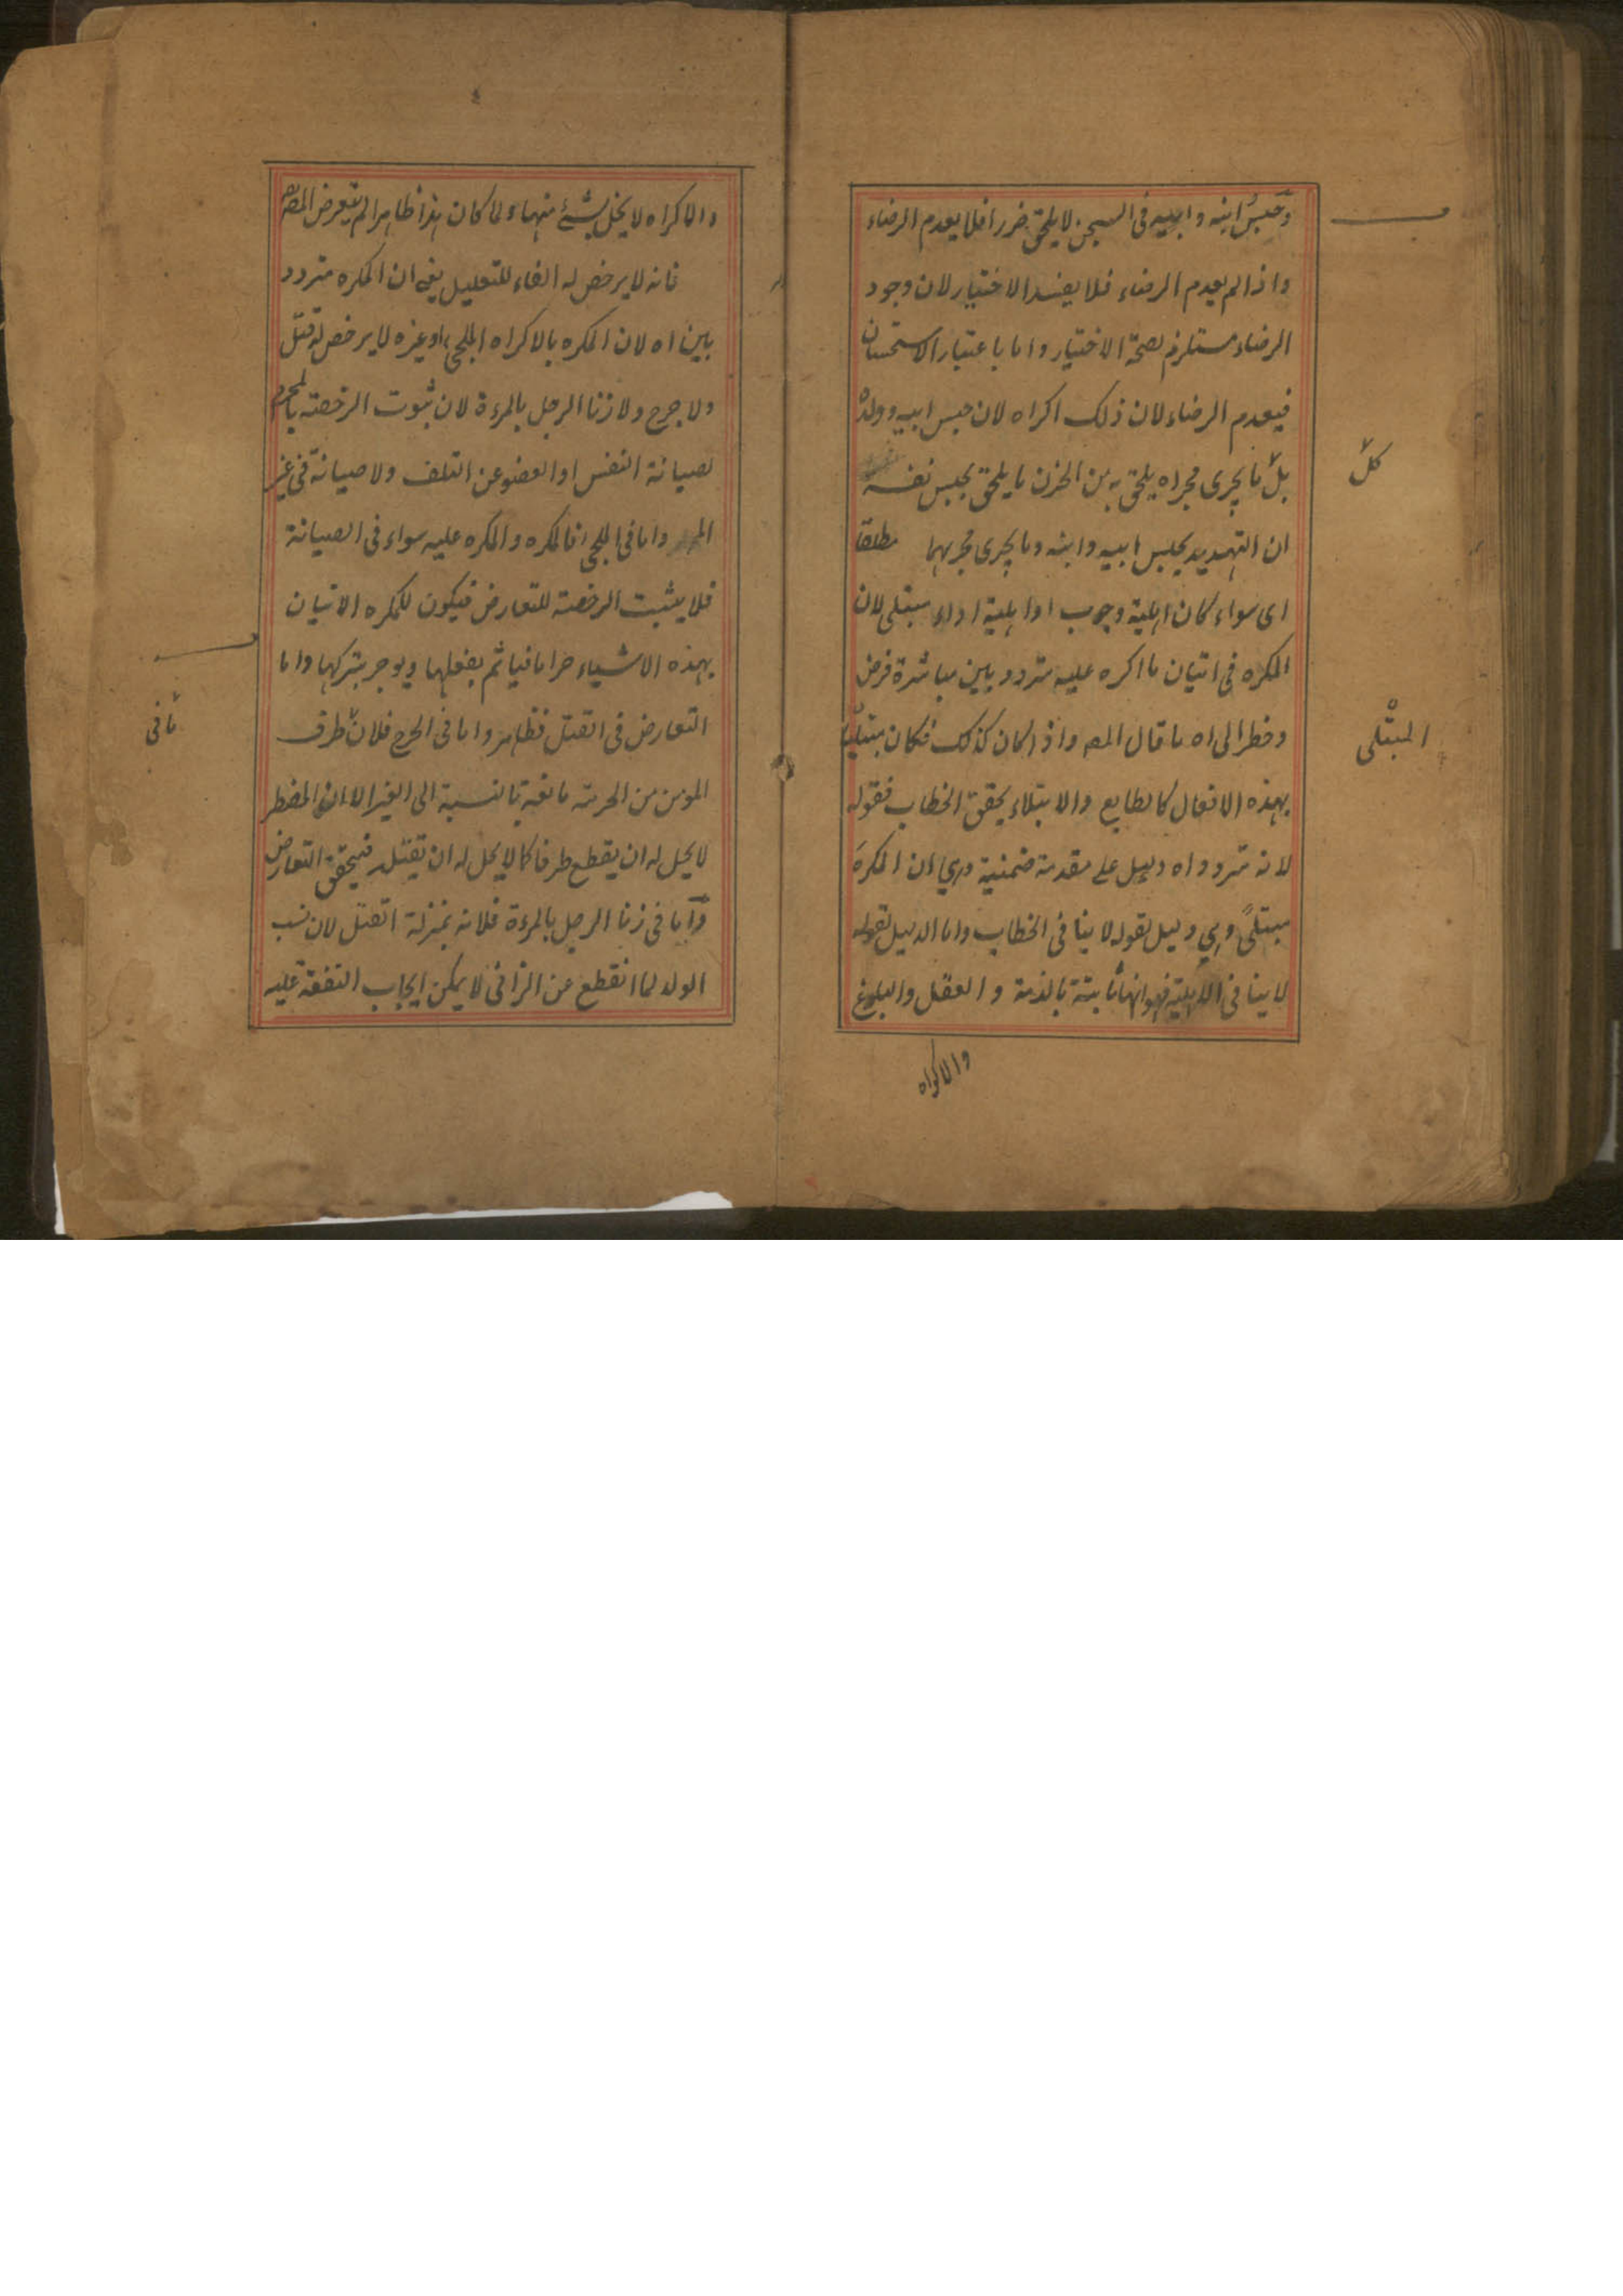 وحبس ابنه وابيه فى السجن لا يلحق ضررا فلا يعدم الرضاء
واذا لم يعدم الرضاء فلا يفسد الاختيار لان وجود
الرضاء مستلزم لصحة الاختيار واما باعتبار الاستحسان
فيعدم الرضاء لان ذلك اكراه لان حبس ابيه وولده
بل ما يجرى مجراه يلحق به من الحزن ما يلحق بحبس نفسه
كل
ان التهديد بحبس ابيه وابنه وما يجرى مجريهما مطلقا
اى سواء كان اهلية وجوب او اهلية اداء مبتلى لان
المكره فى اتيان ما اكره عليه متردد بين مباشرة فرض
وخطر الى اه ما قال المصـ واذا كان كذلك فكان مبتليا
المبتلى
بهذه الافعال كالطايع والابتلاء يحقق الخطاب فقوله
لانه متردد اه دليل على مقدمة ضمنية وهي ان المكره
مبتلىً وهي دليل لقوله لا ينافى الخطاب واما الدليل لقوله
لا ينافى الاهلية فهو انها ثابتة بالذمة والعقل والبلوغ
والاكراه
والاكراه لا يخل بشئ منهما ولما كان هذا ظاهرا لم يتعرض المصـ
فانه لا يرخص له الفاء للتعليل يعنى ان المكره متردد
بين اه لان المكره بالاكراه الملجئ او غيره لا يرخص له قتل
ولا جرح ولا زنا الرجل بالمرءة لان ثبوت الرخصة بالمحرم
لصيانة النفس او العضو عن التلف ولا صيانة فى غير
واما فى الملجئ فالمكره والمكره عليه سواء فى الصيانة
فلا يثبت الرخصة للتعارض فيكون للمكره الاتيان
بهذه الاشياء حراما فياثم بفعلها ويوجر بتركها واما
التعارض فى القتل فظاهر واما فى الجرح فلان طرف
ما فى
المومن من الحرمة ما نفسه بالنسبة الى الغير الا ان المضطر
لا يحل له ان يقطع طرفا كما لا يحل له ان يقتله فيحقق التعارض
واما فى زنا الرجل بالمرءة فلانه بمنزلة القتل لان نسب
الولد لما انقطع عن الزانى لا يمكن ايجاب النفقة عليه